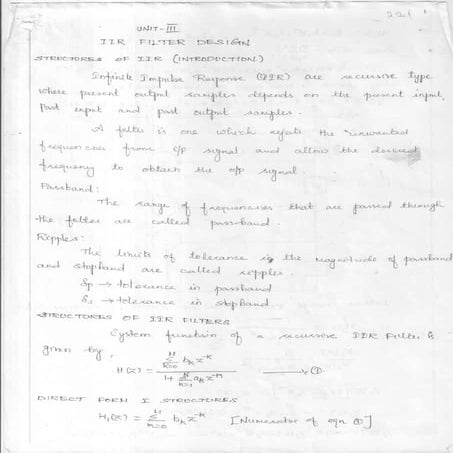 221
UNIT-III
IIR FILTER DESIGN
STRUCTURES OF IIR (INTRODUCTION)
Infinite Impulse Response (IIR) are recursive type
where present output samples depends on the present input,
Past input and past output samples.
A filter is one which rejects the unwanted
frequencies from i/p signal and allow the desired
frequency to obtain the o/p signal
Passband:
The range of frequencies that are passed through
the filter are called passband.
Ripples:
The limits of tolerance in the magnitude of passband
and stopband are called ripples.
δp → tolerance in passband
δs → tolerance in stopband.
STRUCTURES OF IIR FILTERS
System function of a recursive IIR Filter is
given by,
H(z) = \frac{\sum_{k=0}^{M} b_k z^{-k}}{1 + \sum_{k=1}^{N} a_k z^{-k}} → ①
DIRECT FORM I STRUCTURES
H₁(z) = \sum_{k=0}^{M} b_k z^{-k} [Numerator of eqn ①]